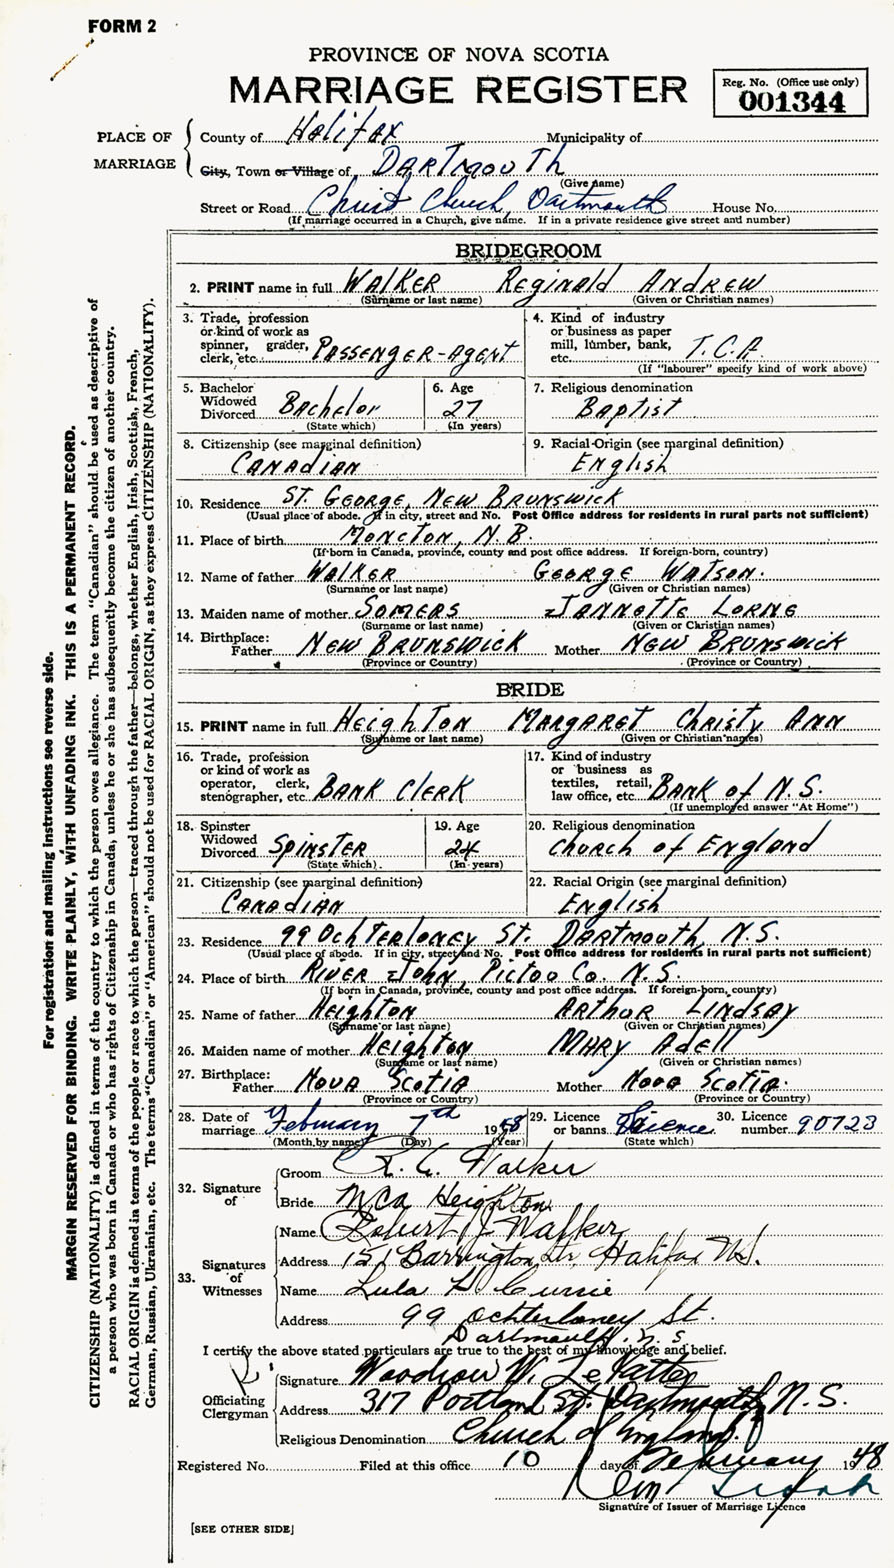 FORM 2
PROVINCE OF NOVA SCOTIA
MARRIAGE REGISTER
Reg. No. (Office use only)
001344
PLACE OF MARRIAGE
County of Halifax Municipality of
City, Town or Village of Dartmouth
(Give name)
Street or Road Christ Church, Dartmouth House No.
(If marriage occurred in a Church, give name. If in a private residence give street and number)
BRIDEGROOM
2. PRINT name in full WALKER Reginald ANDREW
(Surname or last name) (Given or Christian names)
3. Trade, profession or kind of work as spinner, grader, clerk, etc. PASSENGER-AGENT
4. Kind of industry or business as paper mill, lumber, bank, etc. T.C.A.
(If "labourer" specify kind of work above)
5. Bachelor Widowed Divorced Bachelor
(State which)
6. Age 27
(In years)
7. Religious denomination
Baptist
8. Citizenship (see marginal definition)
CANADIAN
9. Racial Origin (see marginal definition)
English
10. Residence ST. GEORGE, NEW BRUNSWICK
(Usual place of abode. If in city, street and No. Post Office address for residents in rural parts not sufficient)
11. Place of birth MONCTON, N.B.
(If born in Canada, province, county and post office address. If foreign-born, country)
12. Name of father WALKER GEORGE WATSON.
(Surname or last name) (Given or Christian names)
13. Maiden name of mother SOMERS JANNETTE LORNE
(Surname or last name) (Given or Christian names)
14. Birthplace:
Father NEW BRUNSWICK Mother NEW BRUNSWICK
(Province or Country) (Province or Country)
BRIDE
15. PRINT name in full HEIGHTON MARGARET Christy ANN
(Surname or last name) (Given or Christian names)
16. Trade, profession or kind of work as operator, clerk, stenographer, etc. BANK ClERK
17. Kind of industry or business as textiles, retail, law office, etc. BANK of N.S.
(If unemployed answer "At Home")
18. Spinster Widowed Divorced SPINSTER
(State which)
19. Age 24
(In years)
20. Religious denomination
Church of ENGlAND
21. Citizenship (see marginal definition)
CANADIAN
22. Racial Origin (see marginal definition)
English
23. Residence 99 OCHTERLONEY ST. DARTMOUTH, N.S.
(Usual place of abode. If in city, street and No. Post Office address for residents in rural parts not sufficient)
24. Place of birth RIVER JOHN, PICTOU Co. N.S.
(If born in Canada, province, county and post office address. If foreign-born, country)
25. Name of father Heighton ARTHUR LINDSAY
(Surname or last name) (Given or Christian names)
26. Maiden name of mother Heighton MARY ADELL
(Surname or last name) (Given or Christian names)
27. Birthplace:
Father NOVA SCOTIA Mother NOVA SCOTIA.
(Province or Country) (Province or Country)
28. Date of marriage February 7th 1948
(Month by name) (Day) (Year)
29. Licence or banns Licence
(State which)
30. Licence number 90723
32. Signature of
Groom R. A. Walker
Bride MCA Heighton
33. Signatures of Witnesses
Name Robert J Walker
Address 151 Barrington Str, Halifax NS.
Name Lula H Currie
Address 99 Ochterloney St.
Dartmouth. N.S
I certify the above stated particulars are true to the best of my knowledge and belief.
Officiating Clergyman
Signature Woodrow W.
Address 317 Portland St. Dartmouth, N.S.
Religious Denomination Church of England.
Registered No. Filed at this office 10 day of February 1948
Signature of Issuer of Marriage Licence
[SEE OTHER SIDE]
For registration and mailing instructions see reverse side.
MARGIN RESERVED FOR BINDING. WRITE PLAINLY, WITH UNFADING INK. THIS IS A PERMANENT RECORD.
CITIZENSHIP (NATIONALITY) is defined in terms of the country to which the person owes allegiance. The term "Canadian" should be used as descriptive of
a person who was born in Canada or who has rights of Citizenship in Canada, unless he or she has subsequently become the citizen of another country.
RACIAL ORIGIN is defined in terms of the people or race to which the person—traced through the father—belongs, whether English, Irish, Scottish, French,
German, Russian, Ukrainian, etc. The terms "Canadian" or "American" should not be used for RACIAL ORIGIN, as they express CITIZENSHIP (NATIONALITY).